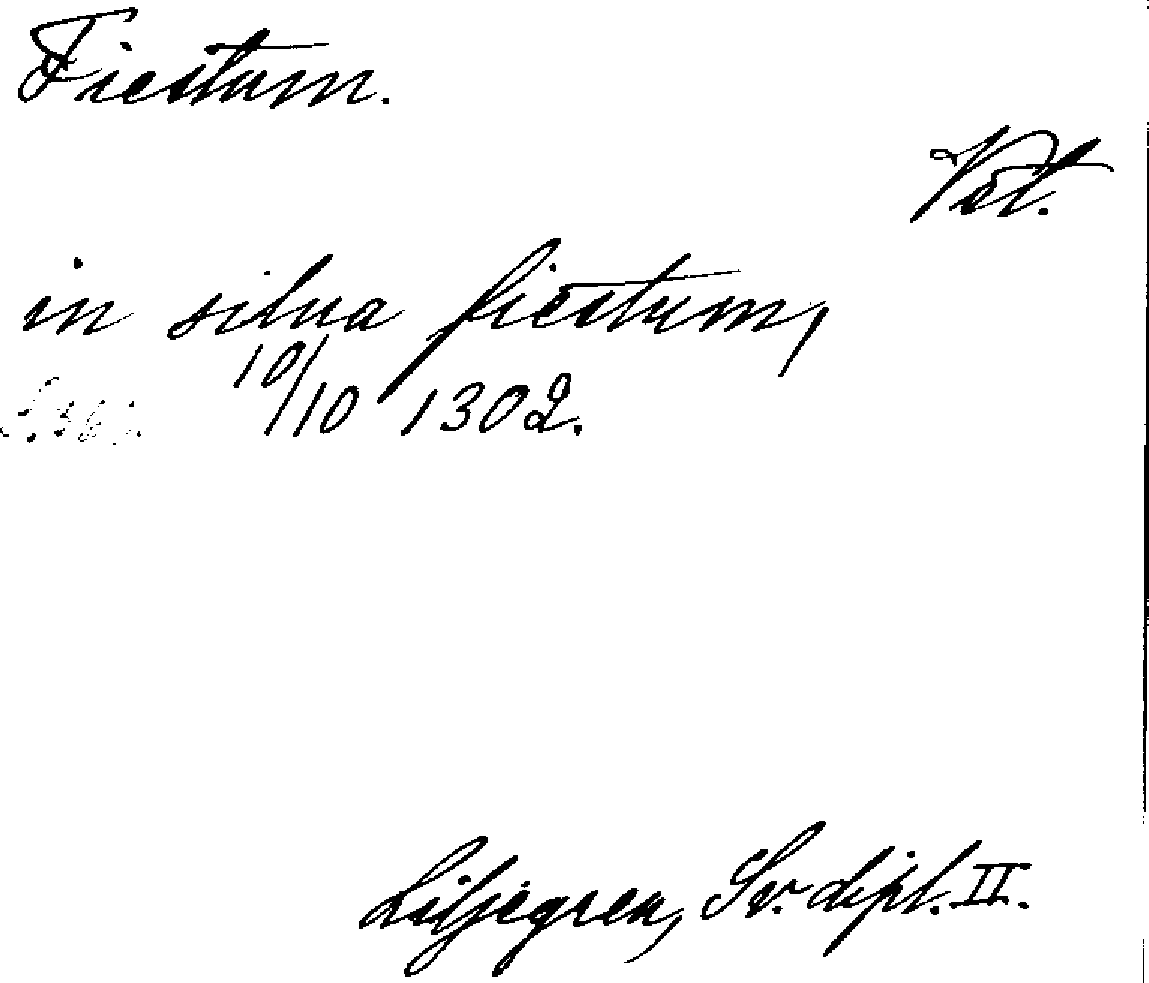 Fiestum.
Vät.
in silua fiestum,
10/10 1302.
Liljegren, Sv. dipl. II.